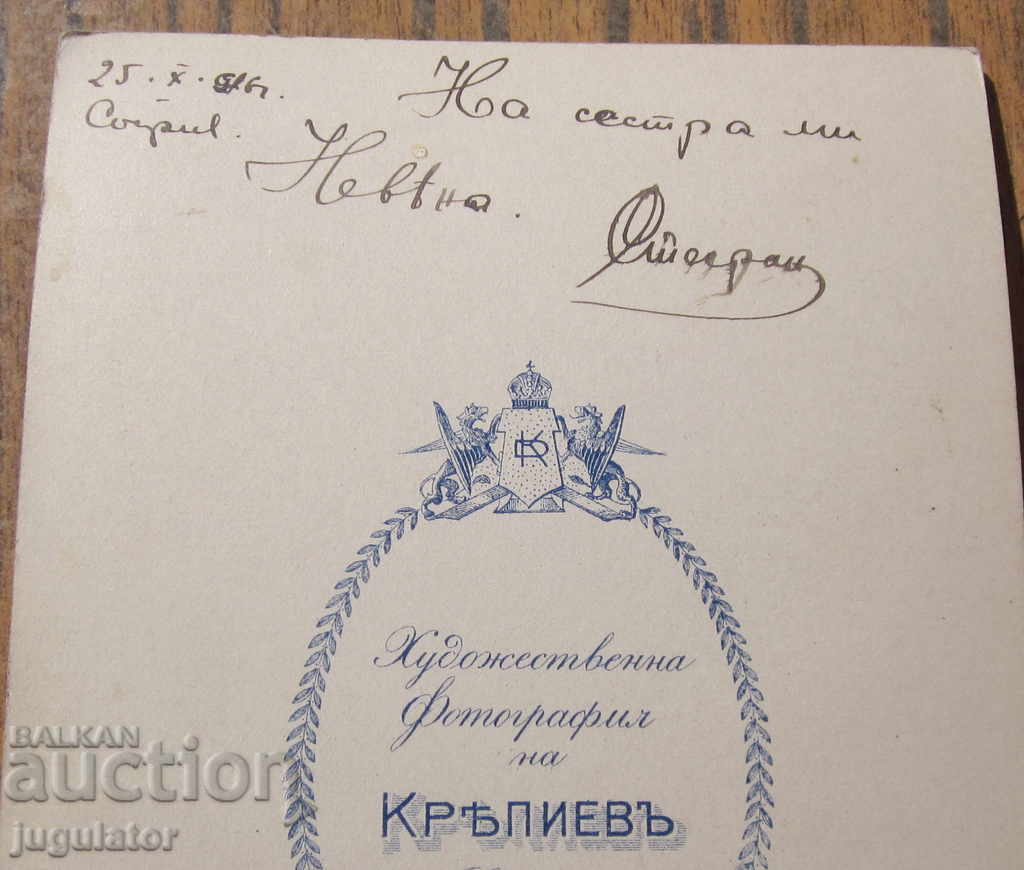 25·X·
София.
На сестра ми
Невѣна.
Стефан
КР
Художествена
Фотография
на
КРѢПИЕВЪ
BALKAN
auction
jugulator